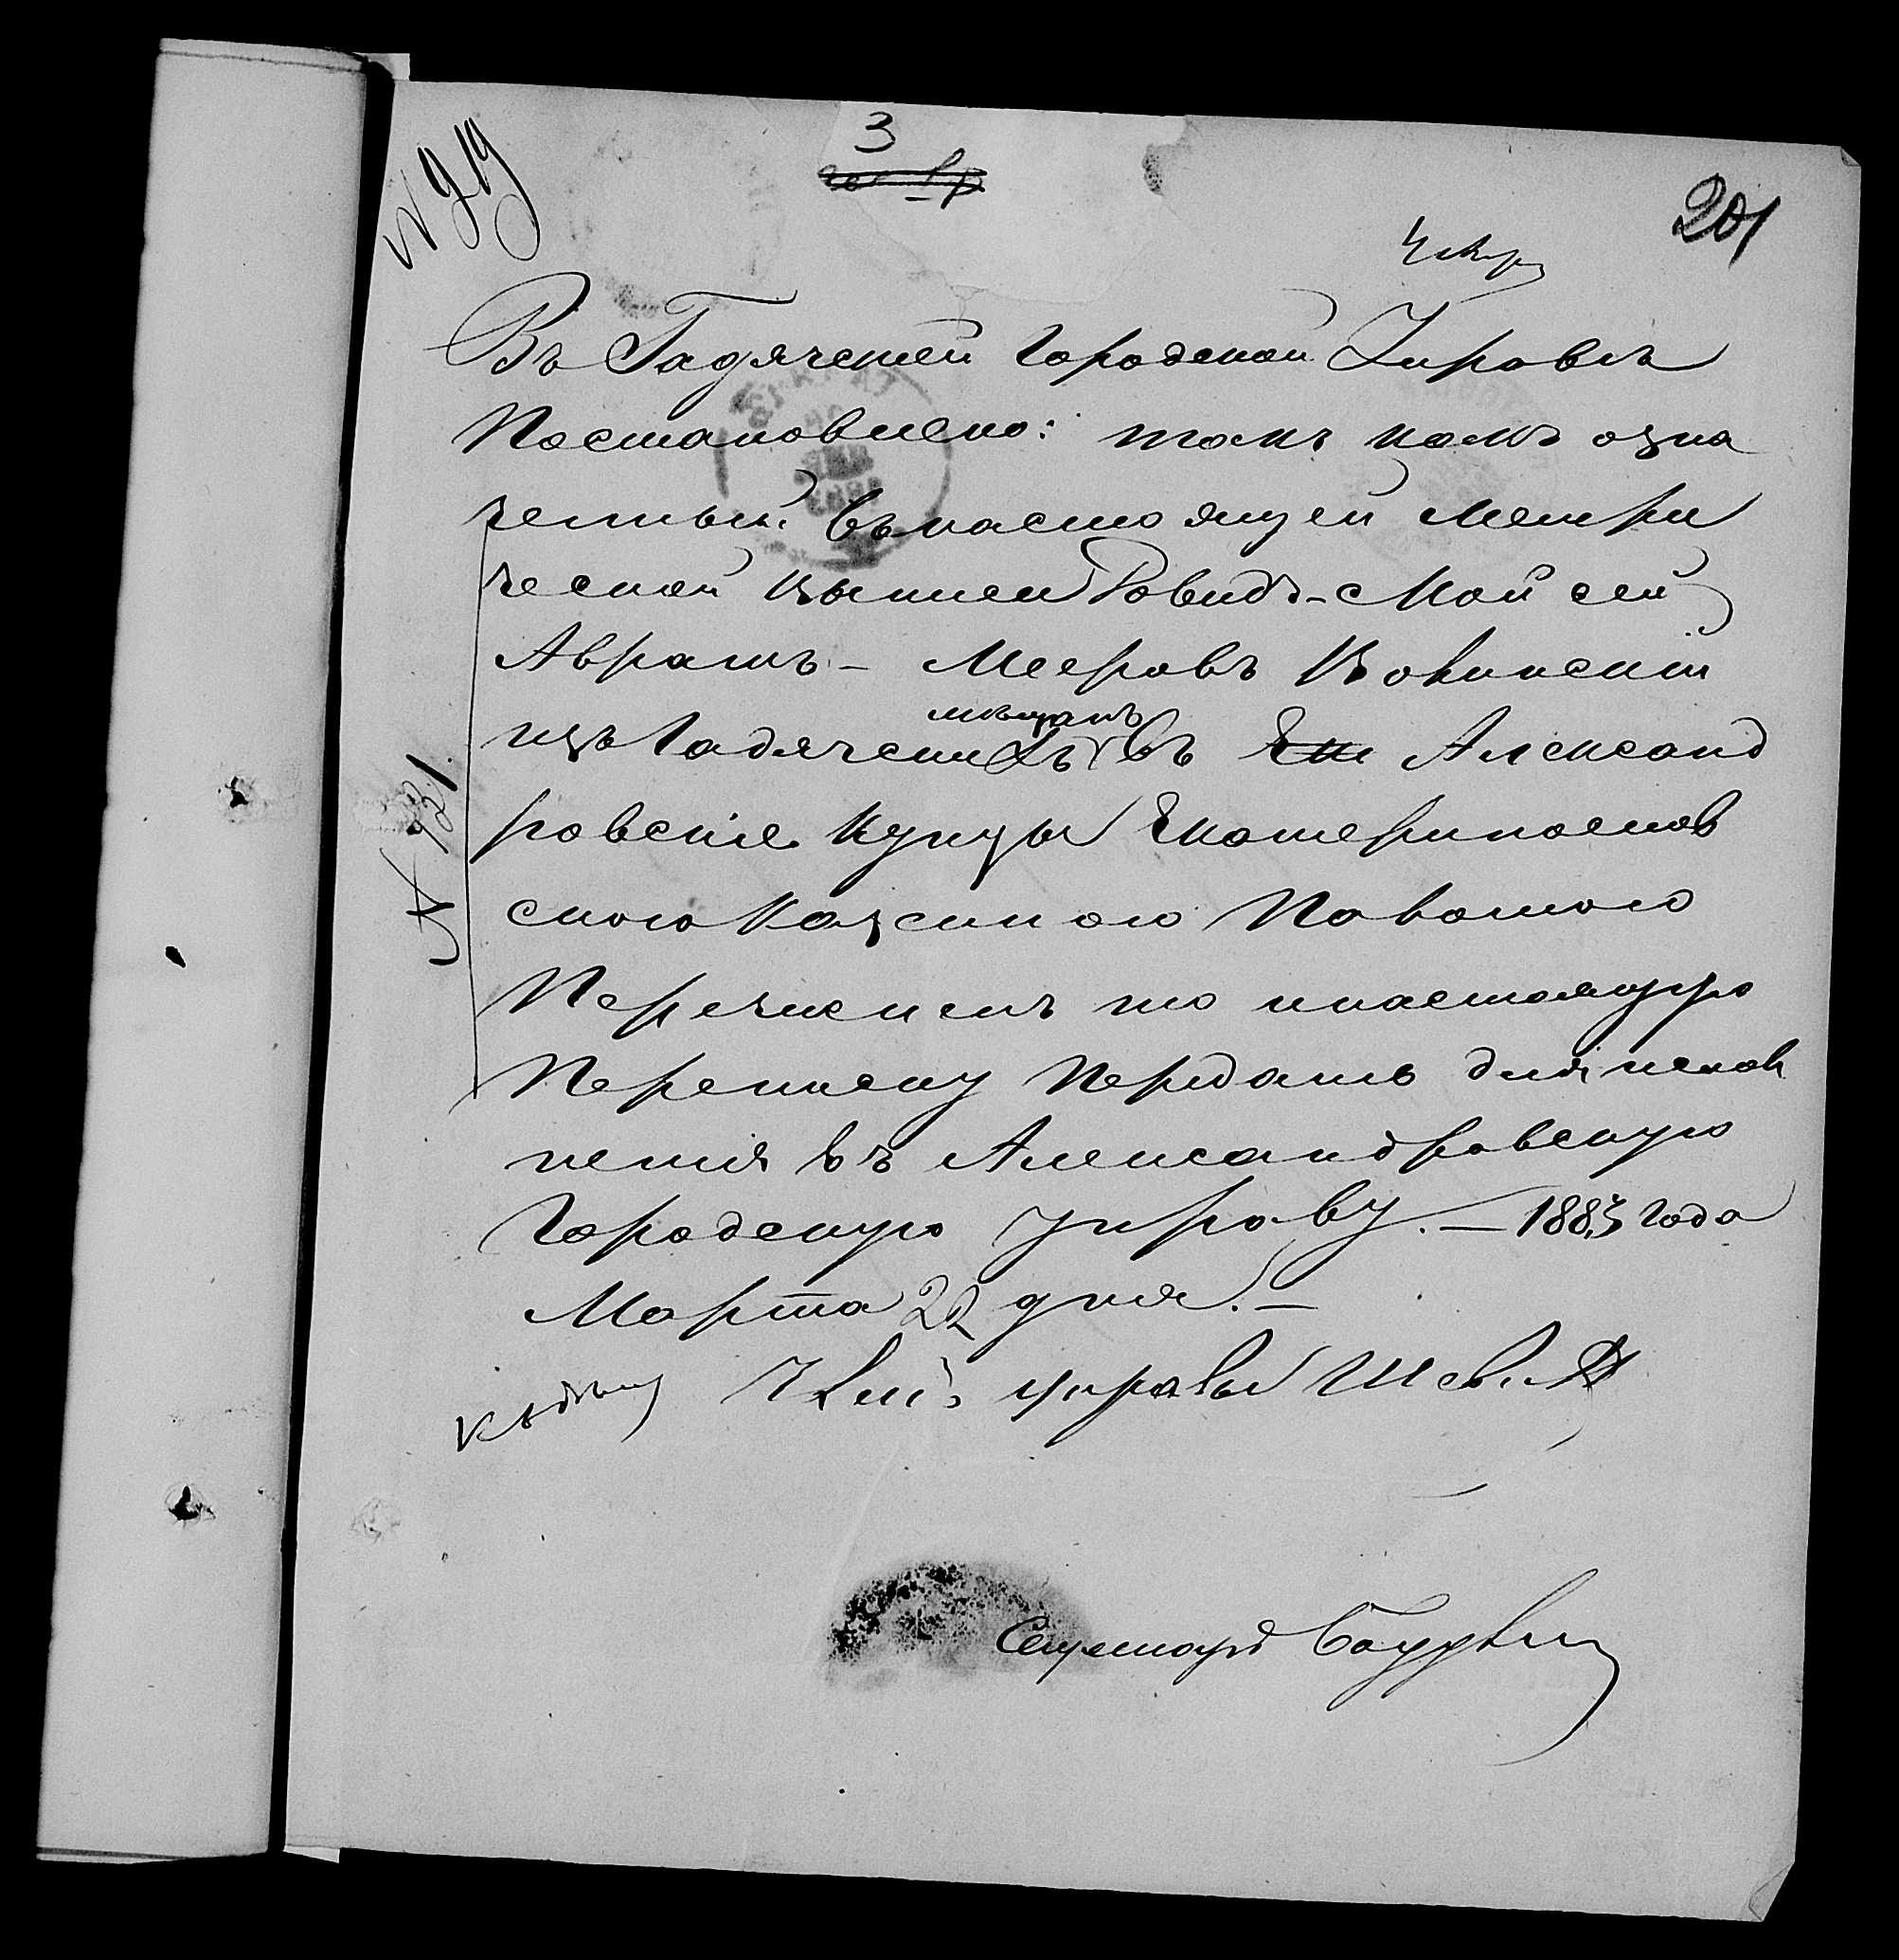 N 919
3
201
Въ Гадячской Городской Управѣ
Постановлено: такъ какъ озна
ченный въ настоящей метри
ческой выписи Довидъ-Мойсей
Аврамъ - Мееровъ
изъ Гадячскихъ мѣщанъ въ Ек Александ
ровскіе купцы Екатеринослав
скою Казенною Палатою
Перечисленъ то настоящую
Переписку Передать для исполн
ненія въ Александровскую
Городскую управу. — 1883 года
Марта 22 дня. —
Къ дѣлу Членъ управы
Секретарь
N 931.